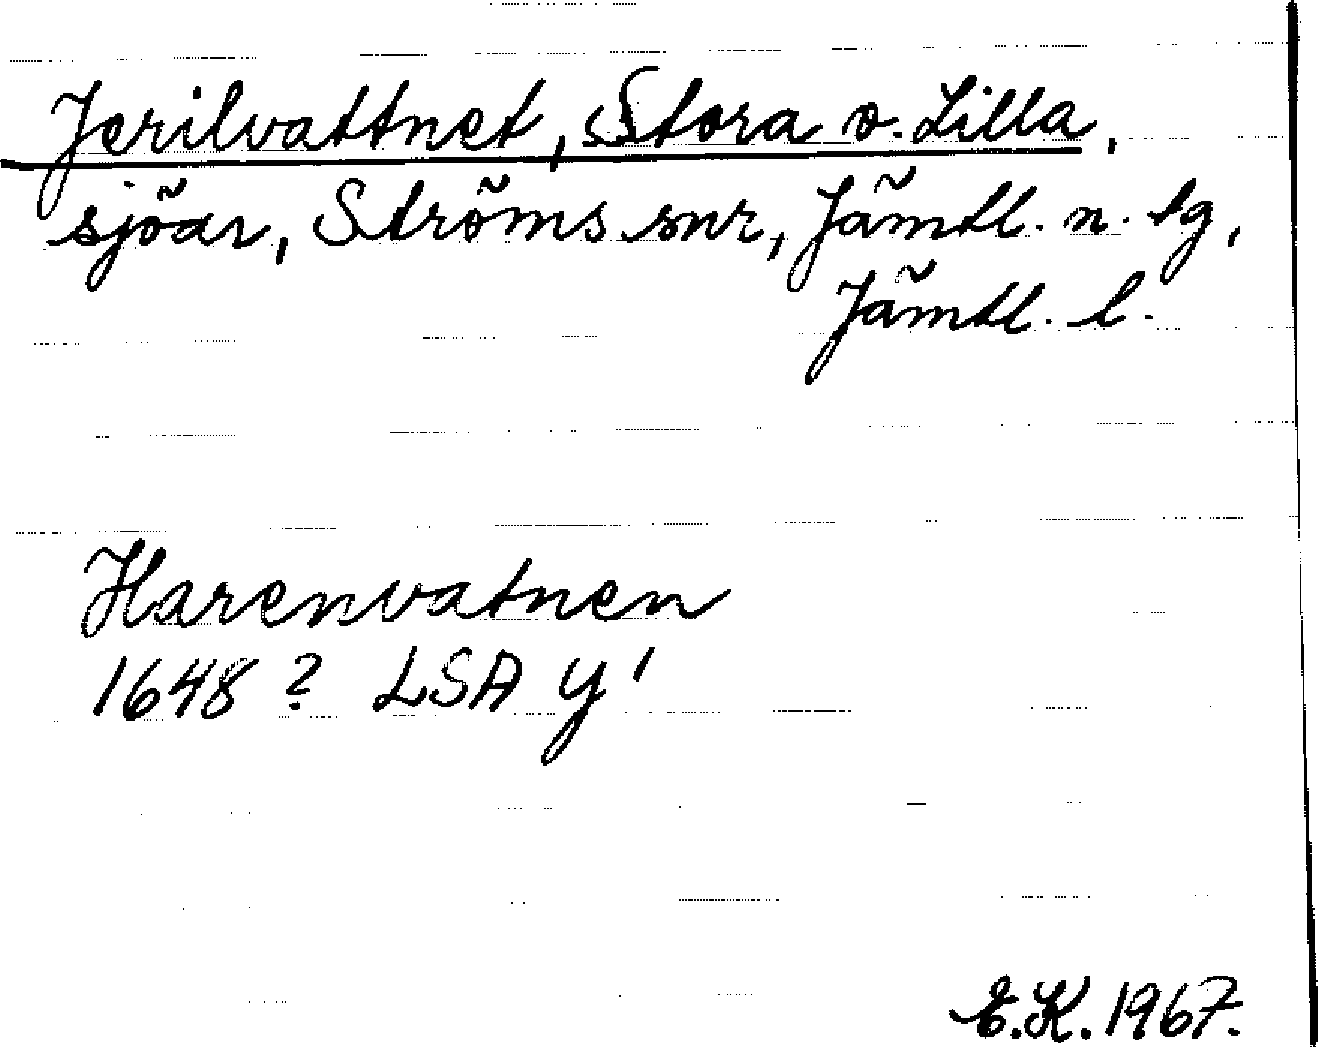 Jerilvattnet, Stora o. Lilla,
sjöar, Ströms snr, Jämtl. n. lg,
Jämtl. l.
Harenvatnen
1648 ? LSA y 1
E.K. 1967.